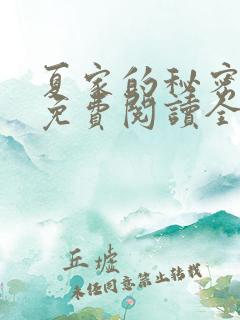 夏家的秘密
免費閱讀全
丘墟
未经同意禁止转载